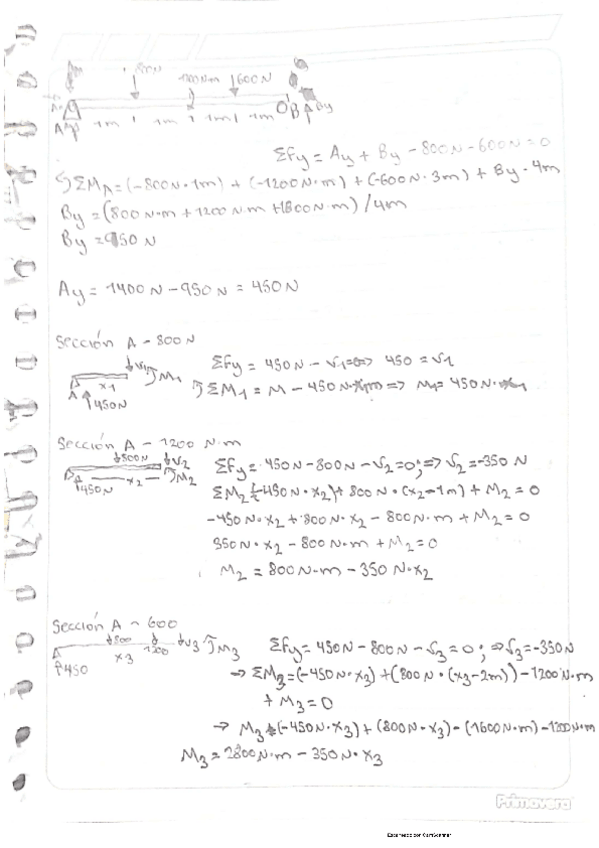 800N 1200N·m ↓600N
A 1m 1m 1m 1m B By
ΣFy = Ay + By - 800N - 600N = 0
ΣMA = (-800N·1m) + (-1200N·m) + (-600N·3m) + By·4m
By = (800N·m + 1200N·m + 1800N·m) / 4m
By = 950N
Ay = 1400N - 950N = 450N
Sección A - 800N
↓V1 M1 x1 A ↑450N
ΣFy = 450N - V1 = 0 => 450 = V1
ΣM1 = M - 450N·x1 => M1 = 450N·x1
Sección A - 1200 N·m
↓800N ↓V2 M2 x2 ↑450N
ΣFy = 450N - 800N - V2 = 0; => V2 = -350 N
ΣM2 (-450N·x2) + 800N·(x2-1m) + M2 = 0
-450N·x2 + 800N·x2 - 800N·m + M2 = 0
350N·x2 - 800N·m + M2 = 0
M2 = 800N·m - 350N·x2
Sección A - 600
↓800 1200 ↓V3 M3 x3 ↑450
ΣFy = 450N - 800N - V3 = 0; => V3 = -350N
→ ΣM3 = (-450N·x3) + (800N·(x3-2m)) - 1200N·m
+ M3 = 0
→ M3 + (-450N·x3) + (800N·x3) - (1600N·m) - 1200N·m
M3 = 2800N·m - 350N·x3
Primavera
Escaneado con CamScanner